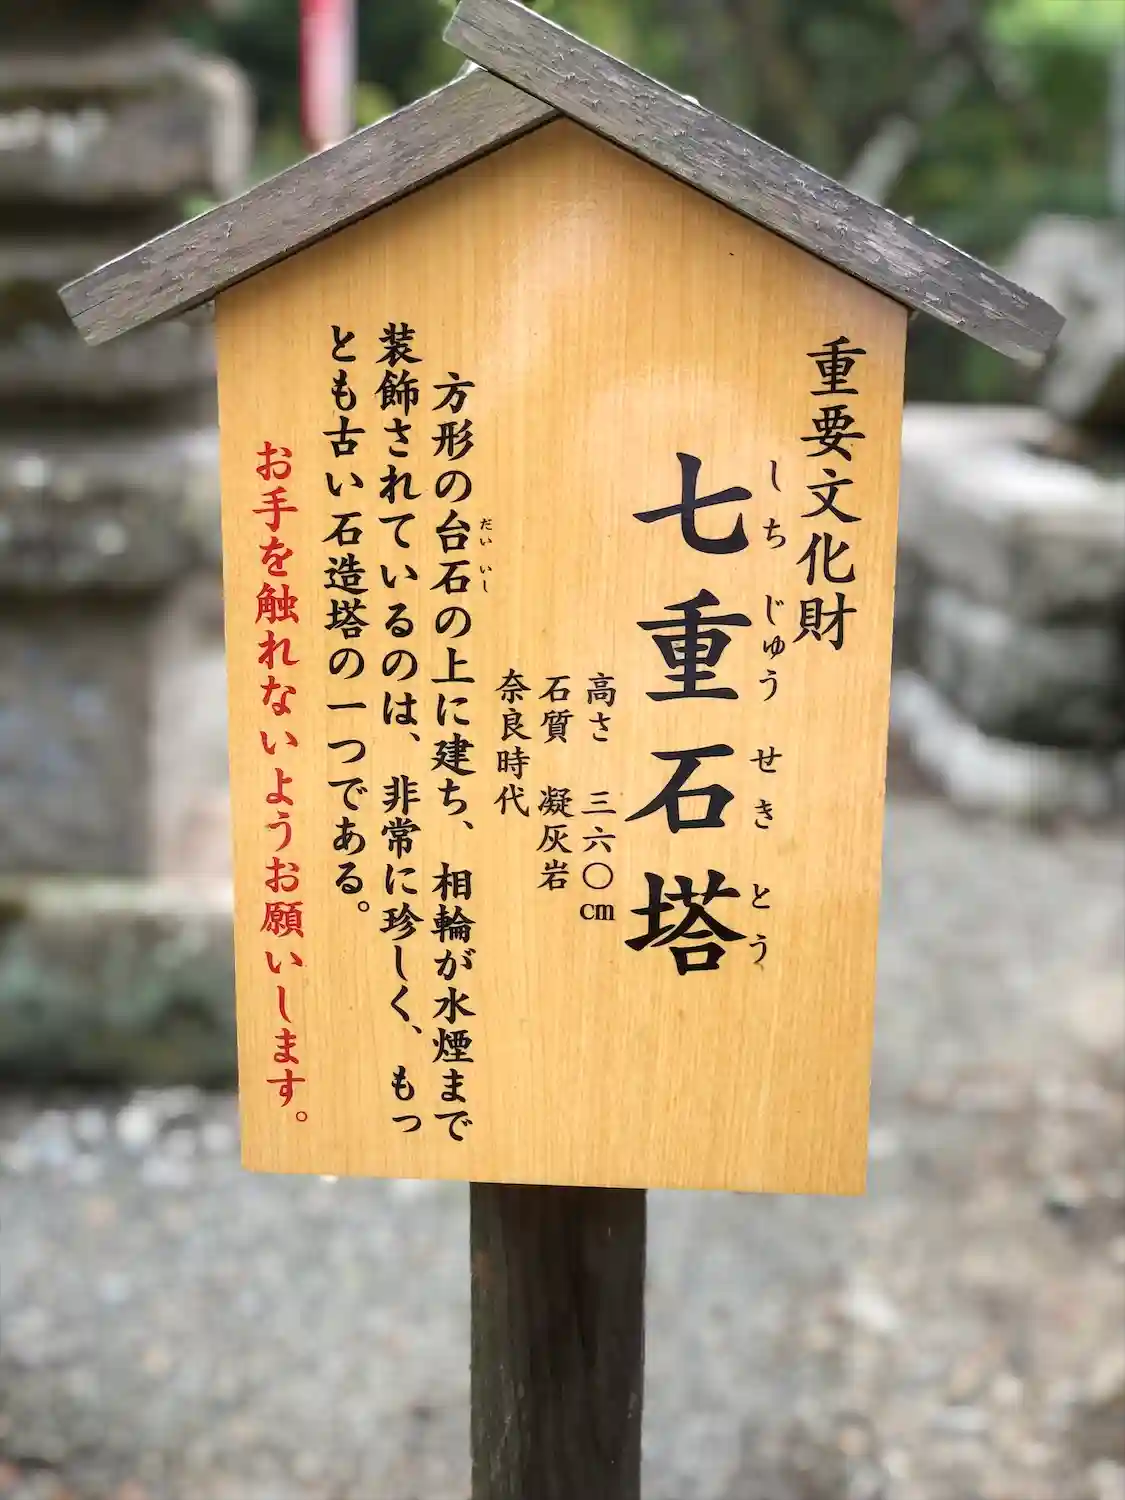 重要文化財
しちじゅうせきとう
七重石塔
高さ 三六〇cm
石質 凝灰岩
奈良時代
だいいし
方形の台石の上に建ち、相輪が水煙まで
装飾されているのは、非常に珍しく、もっ
とも古い石造塔の一つである。
お手を触れないようお願いします。